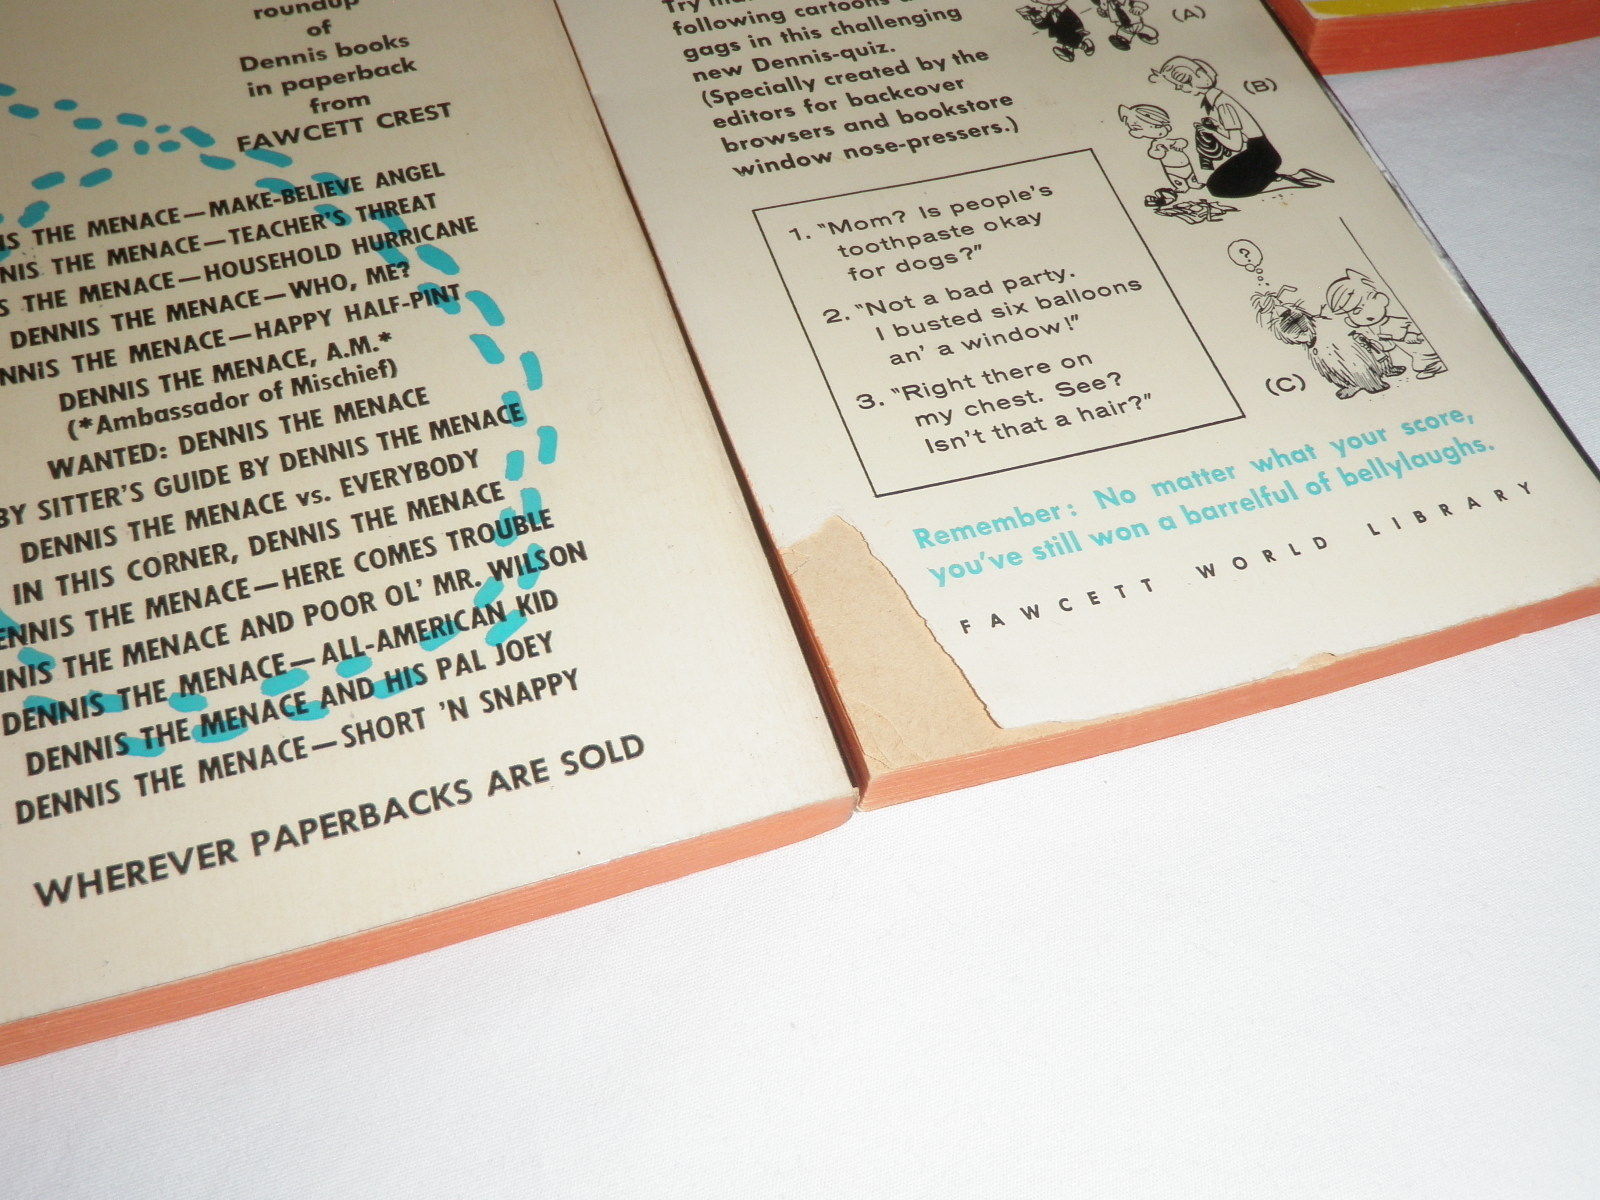 roundup
of
Dennis books
in paperback
from
FAWCETT CREST
THE MENACE—MAKE-BELIEVE ANGEL
THE MENACE—TEACHER'S THREAT
THE MENACE—HOUSEHOLD HURRICANE
DENNIS THE MENACE—WHO, ME?
THE MENACE—HAPPY HALF-PINT
DENNIS THE MENACE, A.M.*
(*Ambassador of Mischief)
WANTED: DENNIS THE MENACE
BY SITTER'S GUIDE BY DENNIS THE MENACE
DENNIS THE MENACE vs. EVERYBODY
IN THIS CORNER, DENNIS THE MENACE
ENNIS THE MENACE—HERE COMES TROUBLE
NNIS THE MENACE AND POOR OL' MR. WILSON
DENNIS THE MENACE—ALL-AMERICAN KID
DENNIS THE MENACE AND HIS PAL JOEY
DENNIS THE MENACE—SHORT 'N SNAPPY
WHEREVER PAPERBACKS ARE SOLD
Try
following cartoons
gags in this challenging
new Dennis-quiz.
(Specially created by the
editors for backcover
browsers and bookstore
window nose-pressers.)
1. "Mom? Is people's
toothpaste okay
for dogs?"
2. "Not a bad party.
I busted six balloons
an' a window!"
3. "Right there on
my chest. See?
Isn't that a hair?"
(A)
(B)
?
(C)
Remember: No matter what your score,
you've still won a barrelful of bellylaughs.
FAWCETT WORLD LIBRARY